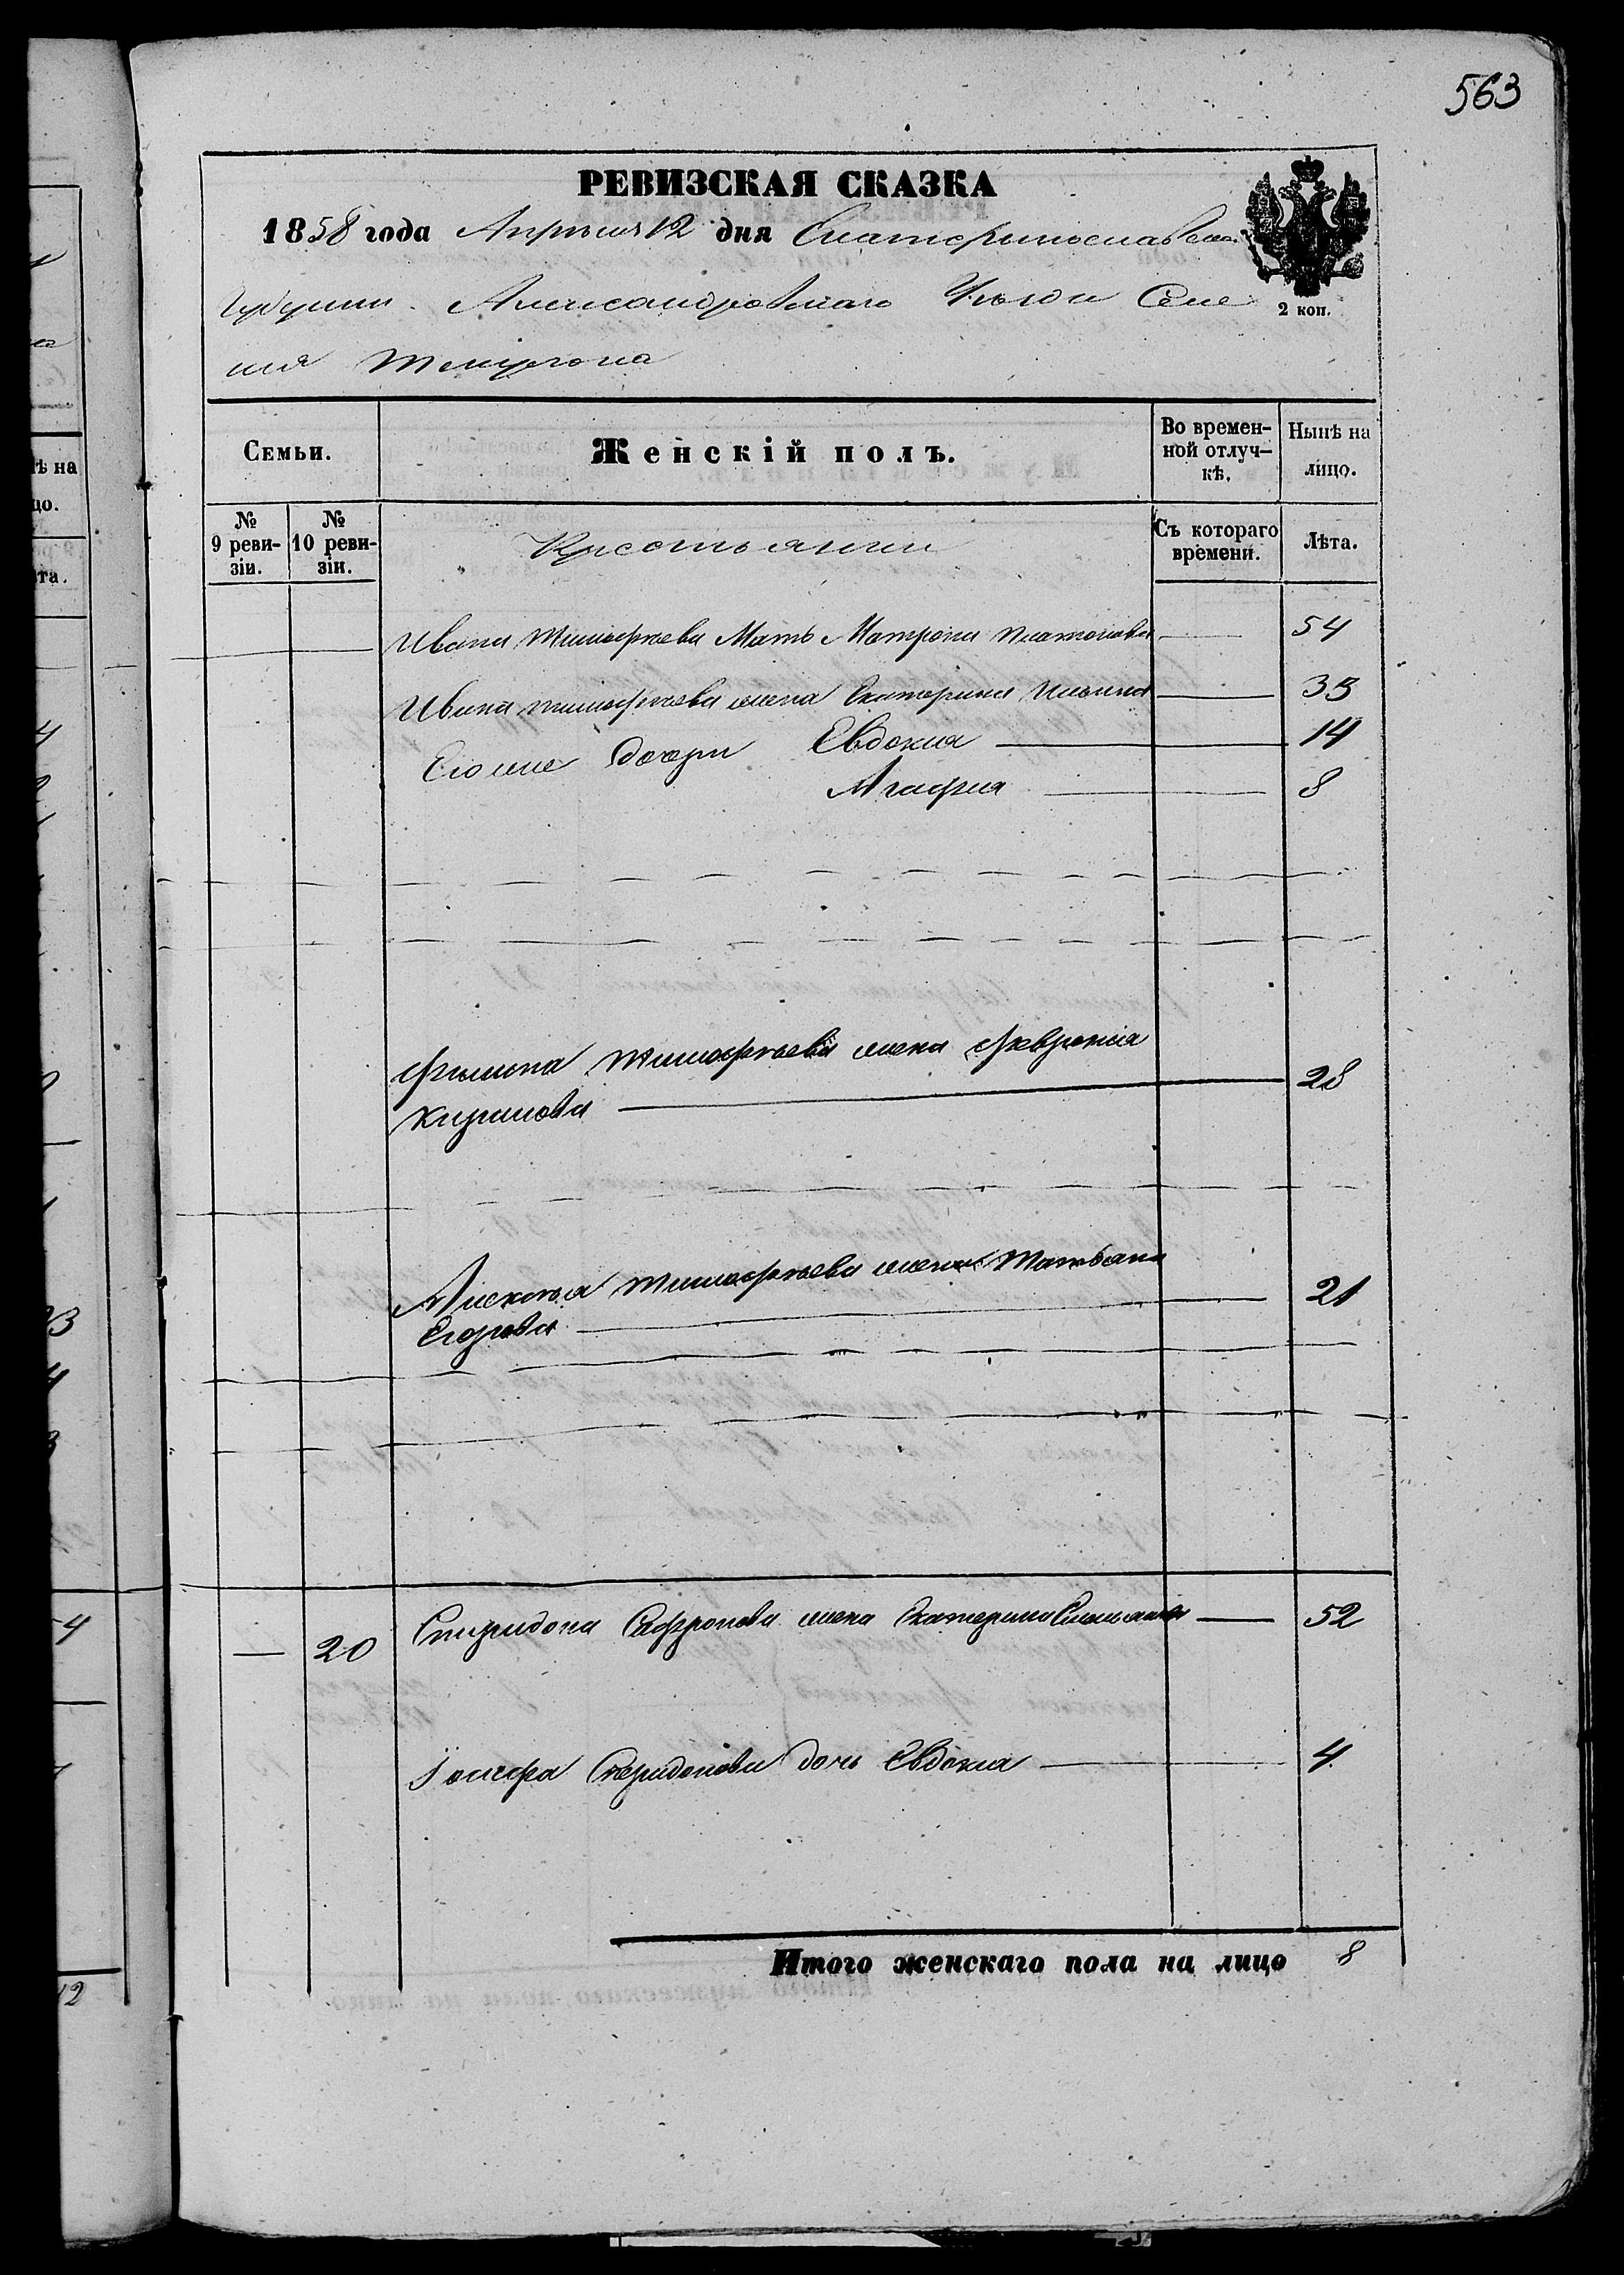 563
РЕВИЗСКАЯ СКАЗКА
1858 года Апреля 12 дня Екатеринославской
Губернии Александровскаго Уезда Селе
ния Темиргона
2 коп.
Семьи.
Женскій полъ.
Во времен-
ной отлуч-
кѣ.
Нынѣ на
лицо.
№
9 реви-
зіи.
№
10 реви-
зіи.
Крестьянки
Съ котораго
времени.
Лѣта.
Ивана Тимофеева Мать Матрона Платонова 54
Ивана Тимофеева жена Екатерина Ильина 35
Его же дочери Евдокия 14
Агафия 8
Филипа Тимофеева жена Февронія
Кирилова 28
Алексея Тимофеева жена Татьяна
Егорова 21
20 Спиридона Сафронова жена Екатерина Емельянова 52
Іосифа Спиридонова дочь Евдокия 4
Итого женскаго пола на лицо 8
ѣ на
цо.
та.